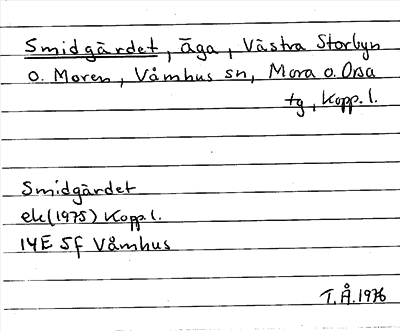 Smidgärdet, äga, Västra Storbyn
o. Moren, Våmhus sn, Mora o. Orsa
tg, Kopp. l.
Smidgärdet
ek (1975) Kopp. l.
14E 5f Våmhus
T.Å. 1976